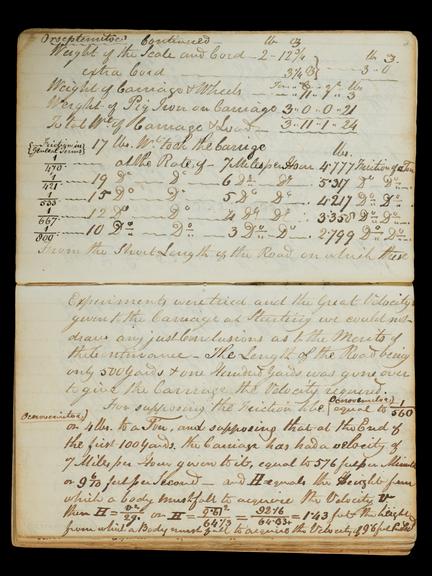 Continued lb 3
Weight of the Scale and Cord - 2 - 12¾ lb 3.
extra Cord 3¼ 3 .. 0
Weight of Carriage & Wheels 11 .. 3
Weight of Pig Iron on Carriage 3 .. 0 .. 0 .. 21
Total Wt of Carriage & Load 3 .. 11 .. 1 .. 24
Friction in 17 lbs. Wt took the Carriage lbs.
1/470 at the Rate of 7 Miles per Hour 4.777 Friction of a Ton
1/421 19 Do Do 6 Do Do 5.317 Do Do
1/533 15 Do Do 5 Do Do 4.217 Do Do
1/667 12 Do Do 4 Do Do 3.358 Do Do
1/800 10 Do Do 3 Do Do 2.799 Do Do
From the Short Length of the Road on which these
Experiments were tried and the Great Velocity
given to the Carriage at Starting we could not
draw any just Conclusions as to the Merits of
the Contrivance - The Length of the Road being
only 500 Yards & one Hundred Yards was gone over
to give the Carriage the Velocity required.
For supposing the Friction to be equal to 1/560
or 4 lbs. to a Ton, and supposing that at the End of
the first 100 Yards, the Carriage has had a velocity of
7 Miles per Hour given to it, equal to 576 feet per Minute
or 9.6 feet per Second - and H equals the Height from
which a body must fall to acquire the Velocity v
then H = v²/2g or H = 9.6²/64⅓ = 92.16/64.33+ = 1.43 feet the height
from which a Body must fall to acquire the Velocity of 9.6 feet